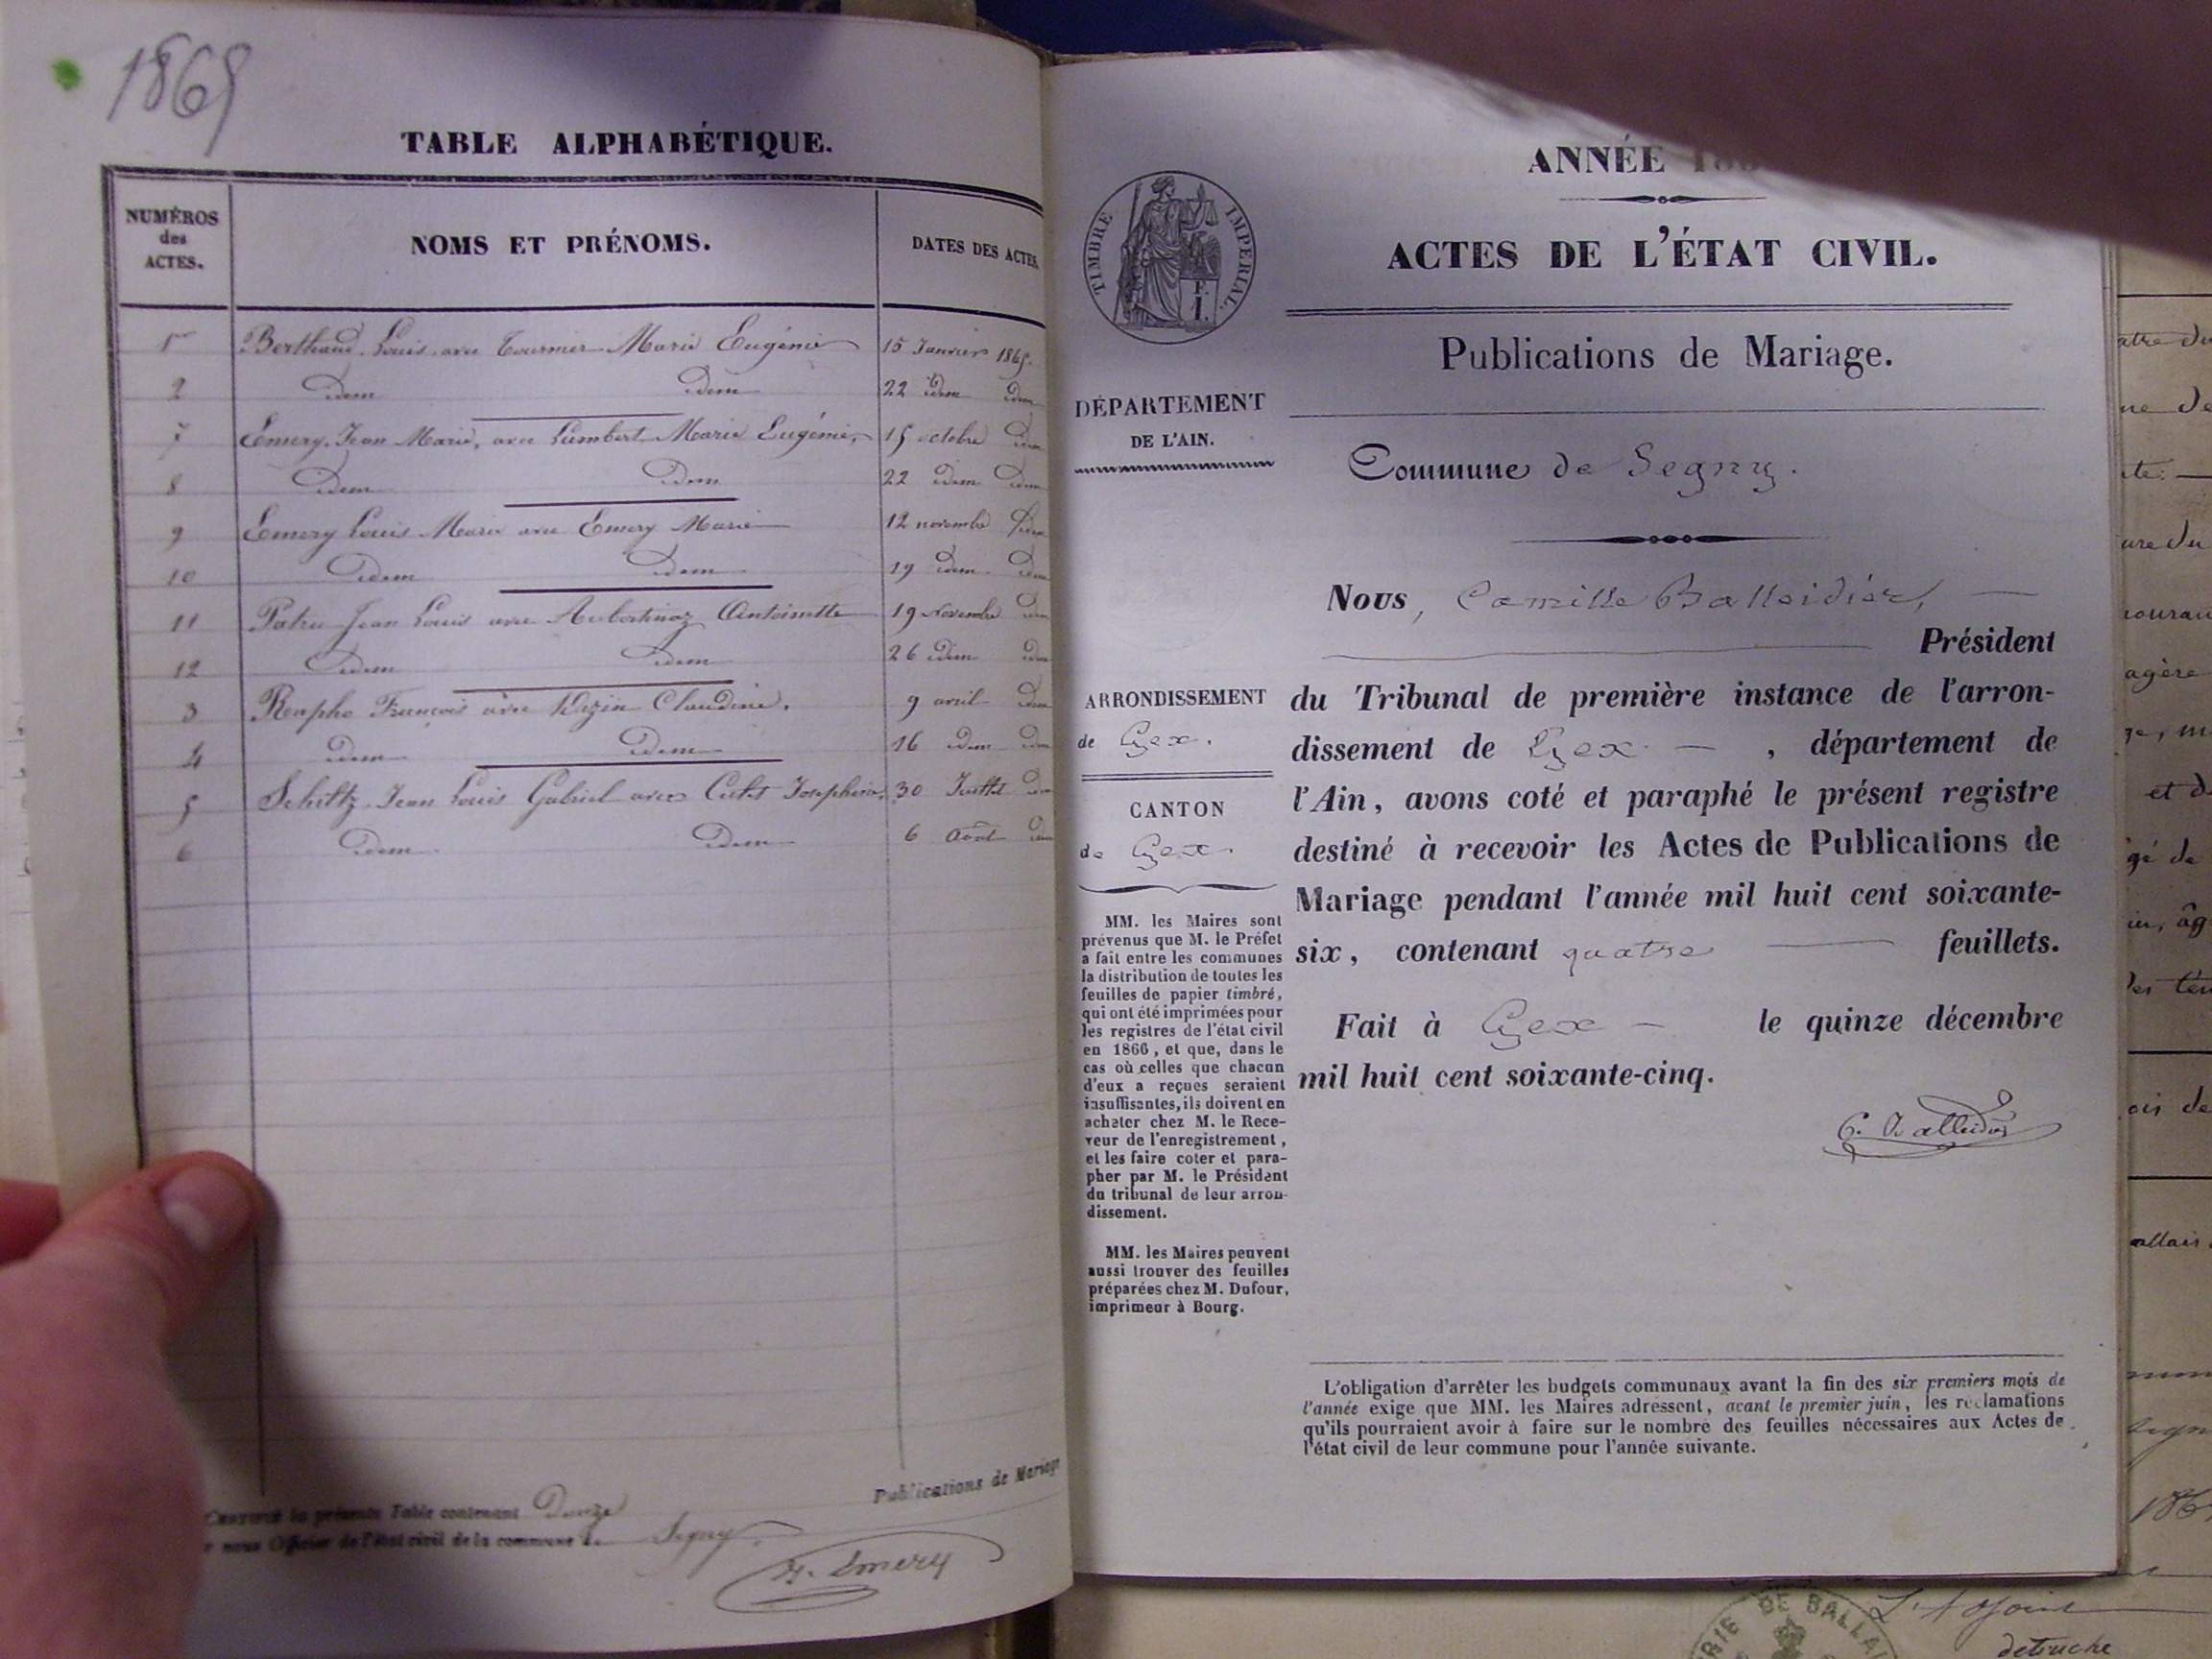 1865
TABLE ALPHABÉTIQUE.
NUMÉROS
des
ACTES.
NOMS ET PRÉNOMS.
DATES DES ACTES
1er Berthaud Louis avec Tournier Marie Eugénie 15 Janvier 1865.
2 idem idem 22 idem idem
7 Emery Jean Marie, avec Lambert Marie Eugénie, 15 octobre idem
8 idem idem 22 idem idem
9 Emery Louis Marie avec Emery Marie 12 novembre idem
10 idem idem 19 idem idem
11 Patru Jean Louis avec Antoinette 19 Novembre idem
12 idem idem 26 idem idem
3 François avec Claudine. 9 avril idem
4 idem idem 16 idem idem
5 Schiltz Jean Louis Gabriel avec Josephine 30 Juillet idem
6 idem idem 6 Août idem
CERTIFIÉ la présente Table contenant Douze Publications de Mariage
r nous Officier de l'état civil de la commune de Segny.
Emery
ANNÉE 186
ACTES DE L'ÉTAT CIVIL.
Publications de Mariage.
TIMBRE IMPÉRIAL.
F.
1.
DÉPARTEMENT
DE L'AIN.
Commune de Segny.
ARRONDISSEMENT
de Gex.
CANTON
de Gex.
MM. les Maires sont
prévenus que M. le Préfet
a fait entre les communes
la distribution de toutes les
feuilles de papier timbré,
qui ont été imprimées pour
les registres de l'état civil
en 1866, et que, dans le
cas où celles que chacun
d'eux a reçues seraient
insuffisantes, ils doivent en
acheter chez M. le Rece-
veur de l'enregistrement,
et les faire coter et para-
pher par M. le Président
du tribunal de leur arron-
dissement.
MM. les Maires peuvent
aussi trouver des feuilles
préparées chez M. Dufour,
imprimeur à Bourg.
Nous, Camille Balleidier,
Président
du Tribunal de première instance de l'arron-
dissement de Gex, département de
l'Ain, avons coté et paraphé le présent registre
destiné à recevoir les Actes de Publications de
Mariage pendant l'année mil huit cent soixante-
six, contenant quatre feuillets.
Fait à Gex le quinze décembre
mil huit cent soixante-cinq.
C. Balleidier
L'obligation d'arrêter les budgets communaux avant la fin des six premiers mois de
l'année exige que MM. les Maires adressent, avant le premier juin, les réclamations
qu'ils pourraient avoir à faire sur le nombre des feuilles nécessaires aux Actes de
l'état civil de leur commune pour l'année suivante.
et d
gé de
ois de
L'Adjoint
detruche
RIE DE BALLA